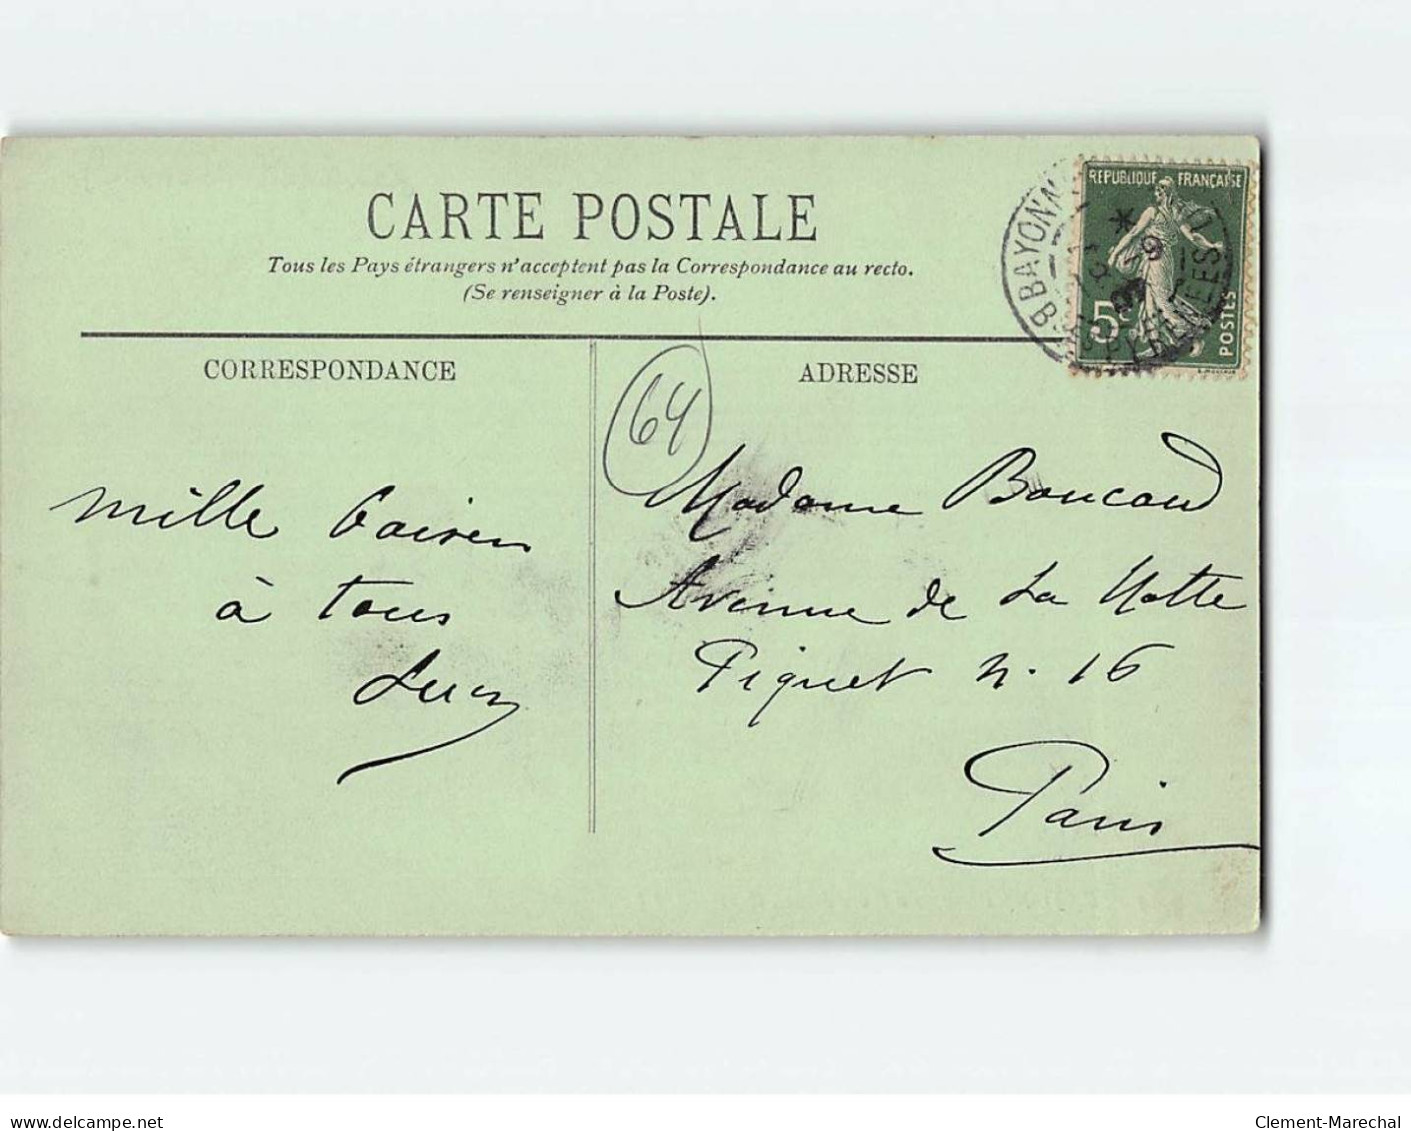 CARTE POSTALE
Tous les Pays étrangers n'acceptent pas la Correspondance au recto.
(Se renseigner à la Poste).
REPUBLIQUE FRANÇAISE
5c
POSTES
BAYONNE
CORRESPONDANCE
ADRESSE
64
Mille baisers
à tous
Lucy
Madame Boucaud
Avenue de La Motte
Piquet N. 16
Paris
delcampe.net
Clement-Marechal